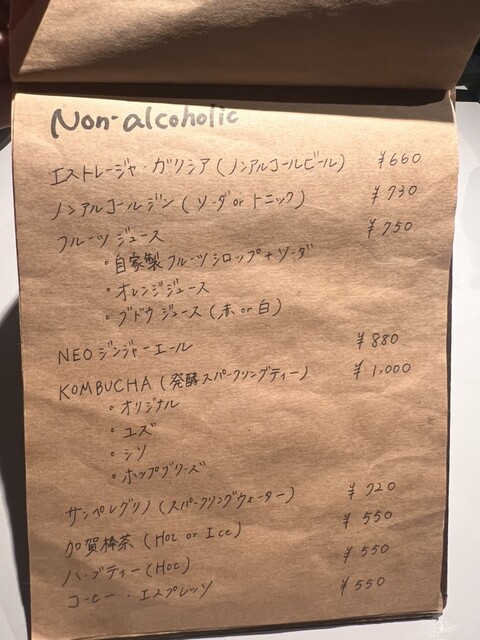 Non-alcoholic
エストレージャ・ガリシア (ノンアルコールビール) ¥660
ノンアルコールジン (ソーダ or トニック) ¥730
フルーツジュース ¥750
・自家製フルーツシロップ+ソーダ
・オレンジジュース
・ブドウジュース (赤 or 白)
NEOジンジャーエール ¥880
KOMBUCHA (発酵スパークリングティー) ¥1,000
・オリジナル
・ユズ
・シソ
・ホップブリーズ
サンペレグリノ (スパークリングウォーター) ¥720
加賀棒茶 (Hot or Ice) ¥550
ハーブティー (Hot) ¥550
コーヒー・エスプレッソ ¥550